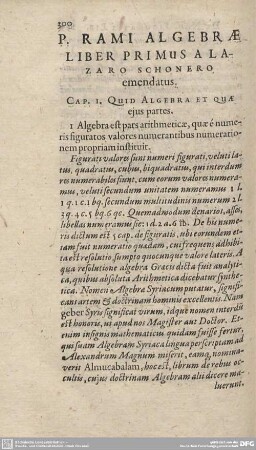 300
P. RAMI ALGEBRÆ
LIBER PRIMUS A LA-
ZARO SCHONERO
emendatus.
CAP. I. QUID ALGEBRA ET QUÆ
ejus partes.
1 Algebra est pars arithmeticæ, quæ è nume-
ris figuratos valores numerantibus numeratio-
nem propriam instituit.
Figurati valores sunt numeri figurati, veluti la-
tus, quadratus, cubus, biquadratus, qui interdum
res numerabiles sunt, cum eorum valores numera-
mus, veluti secundum unitatem numeramus 1 l.
1 q. 1 c. 1 bq. secundum multitudinis numerum 2 l.
3 q. 4 c. 5 bq. 6 qc. Quemadmodum denarios, asses,
libellas numeramus sic: 1 d. 2 a. 6 ℔. Ubi hic nume-
ris dictum est 5 cap. de figuratis, ubi eorundem et-
iam fuit numeratio quædam, cuis frequens adhibi-
ta est resolutio sumpto quocunque valore lateris. A
qua resolutione algebra Græcis dicta fuit analyti-
ca, quibus absoluta Arithmetica dicebatur synthe-
tica. Nomen Algebræ Syriacum putatur, signifi-
cans artem & doctrinam hominis excellentis. Nam
geber Syris significat virum, idque nomen interdũ
est honoris, ut apud nos Magister aut Doctor. Et-
enim insignis mathematicus quidam fuisse fertur,
qui suam Algebram Syriaca lingua perscriptam ad
Alexandrum Magnum miserit, eamq; nomina-
verit Almucabalam, hoc est, librum de rebus oc-
cultis, cujus doctrinam Algebram alii dicere ma-
luerunt.